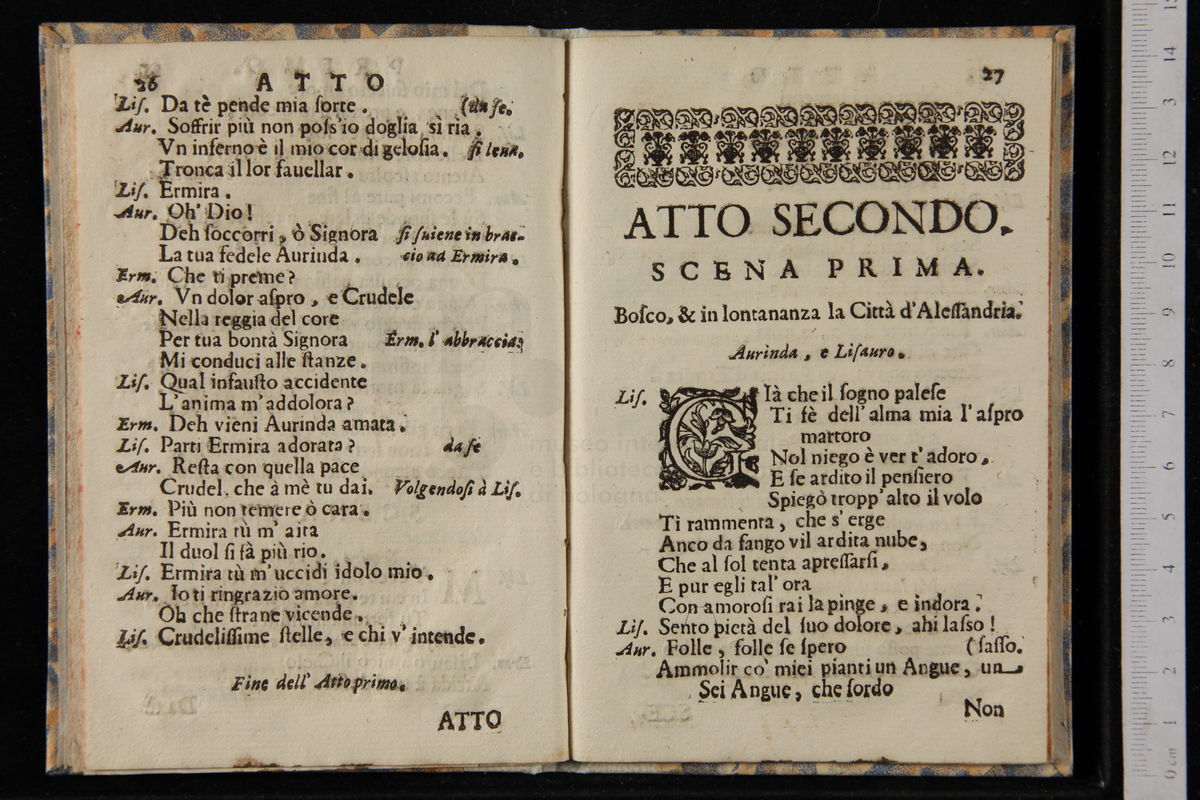 26 ATTO
Lis. Da tè pende mia sorte. (da se.
Aur. Soffrir più non poss'io doglia sì ria.
Vn inferno è il mio cor di gelosia. si leua.
Tronca il lor fauellar.
Lis. Ermira.
Aur. Oh' Dio!
Deh soccorri, ò Signora si suiene in brac-
La tua fedele Aurinda. cio ad Ermira.
Erm. Che ti preme?
Aur. Vn dolor aspro, e Crudele
Nella reggia del core
Per tua bontà Signora Erm. l'abbraccia;
Mi conduci alle stanze.
Lis. Qual infausto accidente
L'anima m'addolora?
Erm. Deh vieni Aurinda amata.
Lis. Parti Ermira adorata? da se
Aur. Resta con quella pace
Crudel, che à mè tu dai. Volgendosi à Lis.
Erm. Più non temere ò cara.
Aur. Ermira tù m'aita
Il duol si fà più rio.
Lis. Ermira tù m'uccidi idolo mio.
Aur. Io ti ringrazio amore.
Oh che strane vicende.
Lis. Crudelissime stelle, e chi v'intende.
Fine dell' Atto primo.
ATTO
27
ATTO SECONDO.
SCENA PRIMA.
Bosco, & in lontananza la Città d'Alessandria.
Aurinda, e Lisauro.
Lis. GIà che il sogno palese
Ti fè dell'alma mia l'aspro
martoro
Nol niego è ver t'adoro,
E se ardito il pensiero
Spiegò tropp'alto il volo
Ti rammenta, che s'erge
Anco da fango vil ardita nube,
Che al sol tenta apressarsi,
E pur egli tal'ora
Con amorosi rai la pinge, e indora.
Lis. Sento pietà del suo dolore, ahi lasso!
Aur. Folle, folle se spero (sasso.
Ammolir co' miei pianti un Angue, un
Sei Angue, che sordo
Non